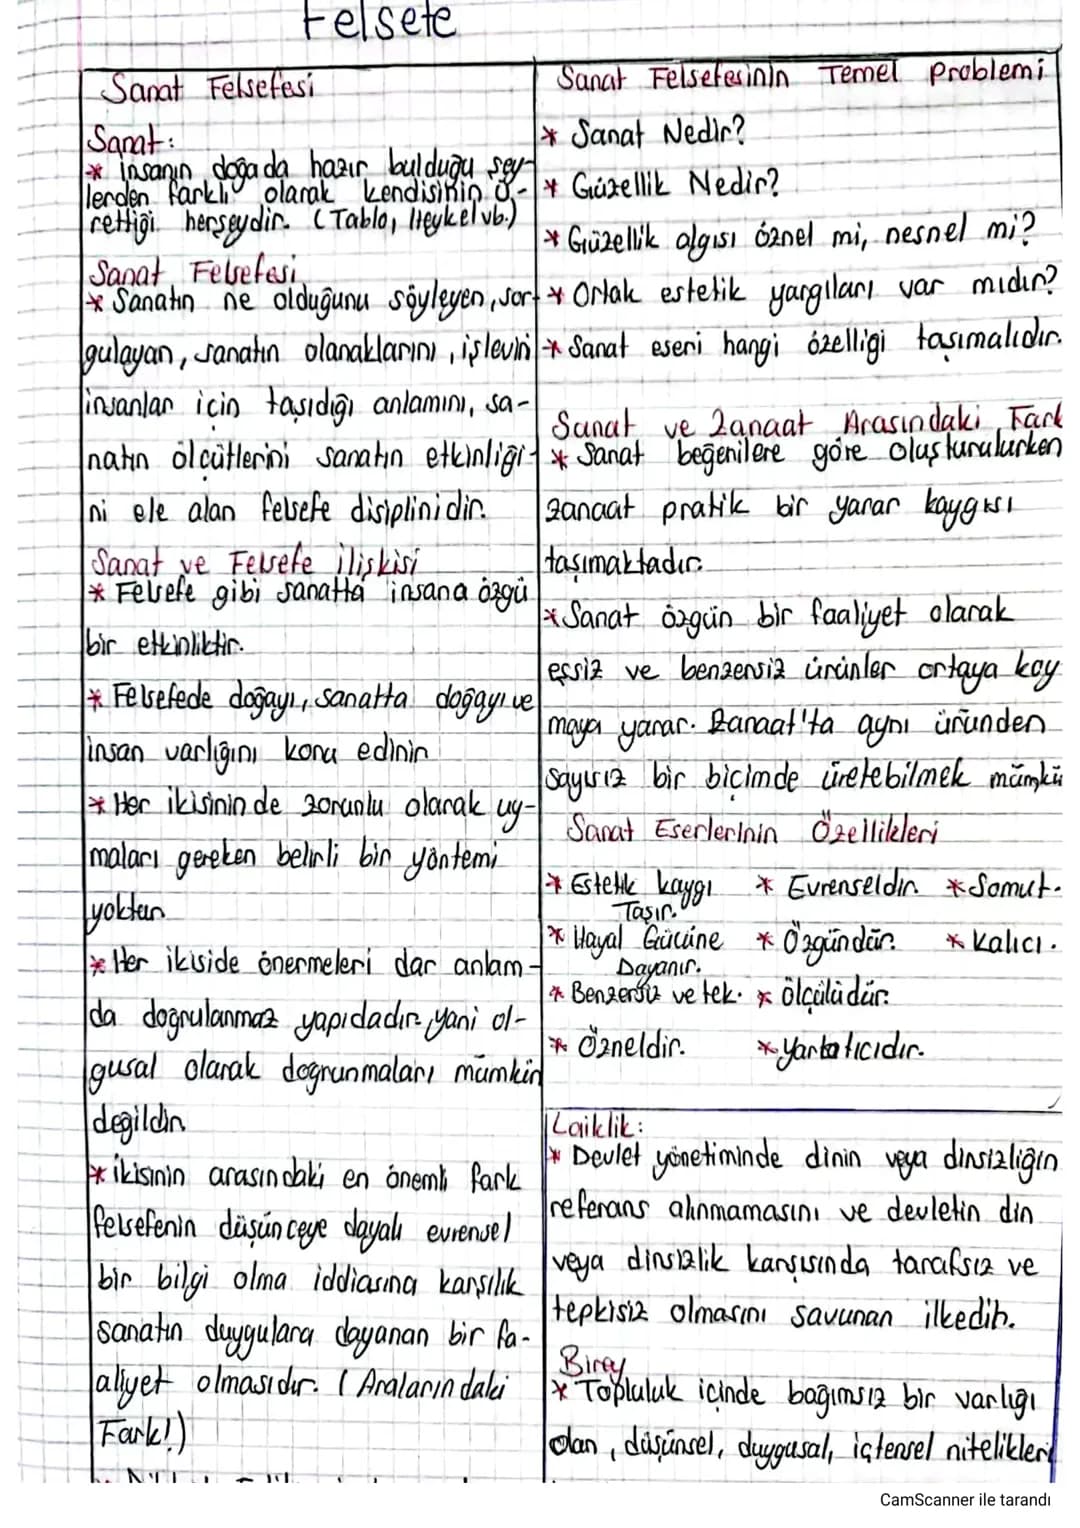 Felsefe
Sanat Felsefesi
Sanat:
* İnsanın doğada hazır bulduğu şey-
lerden farklı olarak kendisinin ü-
rettiği herşeydir. (Tablo, Heykel vb.)
Sanat Felsefesi
* Sanatın ne olduğunu söyleyen, sor-
gulayan, sanatın olanaklarını, işlevini
insanlar için taşıdığı anlamını, sa-
natın ölçütlerini sanatın etkinliği-
ni ele alan felsefe disiplinidir.
Sanat ve Felsefe ilişkisi
* Felsefe gibi sanatta insana özgü
bir etkinliktir.
* Felsefede doğayı, sanatta doğayı ve
insan varlığını konu edinir
* Her ikisinin de zorunlu olarak uy-
maları gereken belirli bir yöntemi
yoktur
* Her ikiside önermeleri dar anlam-
da doğrulanmaz yapıdadır yani ol-
gusal olarak doğrunmaları mümkün
değildir
* İkisinin arasındaki en önemli fark
felsefenin düşünceye dayalı evrensel
bir bilgi olma iddiasına karşılık
sanatın duygulara dayanan bir fa-
aliyet olmasıdır. (Aralarındaki
Fark!)
Sanat Felsefesinin Temel Problemi
* Sanat Nedir?
* Güzellik Nedir?
* Güzellik algısı öznel mi, nesnel mi?
* Ortak estetik yargıları var mıdır?
* Sanat eseri hangi özelliği taşımalıdır.
Sanat ve Zanaat Arasındaki Fark
* Sanat beğenilere göre oluşturulurken
zanaat pratik bir yarar kaygısı
taşımaktadır.
* Sanat özgün bir faaliyet olarak
eşsiz ve benzersiz ürünler ortaya koy
maya yarar. Zanaat'ta aynı üründen
sayısız bir biçimde üretebilmek mümkü
Sanat Eserlerinin Özellikleri
* Estetik kaygı Taşır. * Evrenseldir * Somut.
* Hayal Gücüne Dayanır. * Özgündür. * Kalıcı.
* Benzersiz ve tek. * ölçülüdür.
* Özneldir. * Yartatıcıdır.
Laiklik:
* Devlet yönetiminde dinin veya dinsizliğin
referans alınmamasını ve devletin din
veya dinsizlik karşısında tarafsız ve
tepkisiz olmasını savunan ilkedir.
Birey
* Topluluk içinde bağımsız bir varlığı
olan, düşünsel, duygusal, içtensel nitelikleri
CamScanner ile tarandı